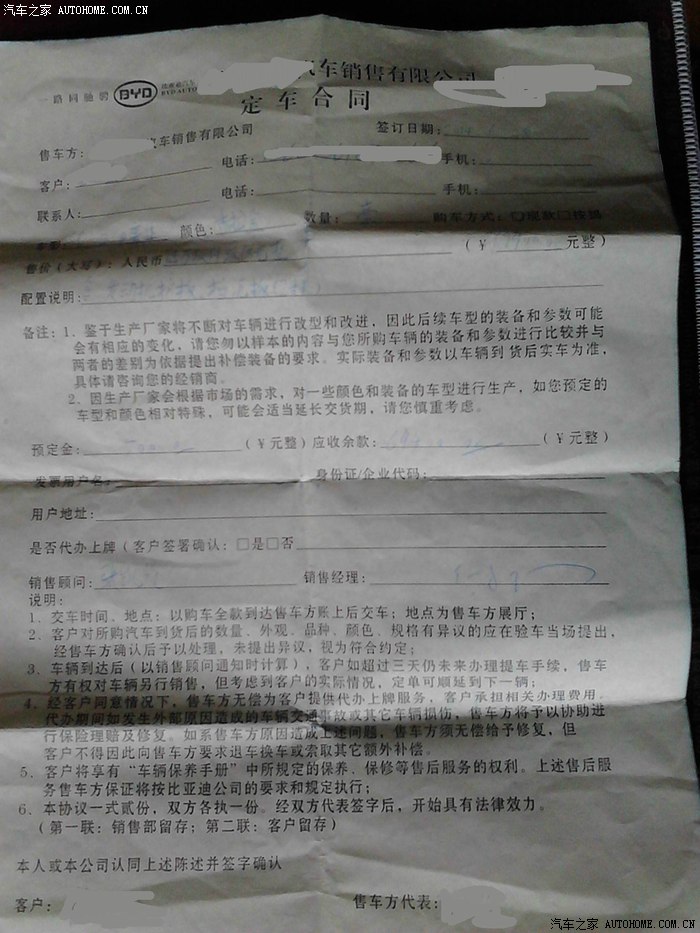 汽车之家 AUTOHOME.COM.CN
一路同驰骋 BYD 比亚迪汽车 BYD AUTO 汽车销售有限公司
定车合同
签订日期：
售车方： 汽车销售有限公司
客户： 电话： 手机：
联系人： 电话： 手机：
车型： 颜色： 数量： 购车方式：□现款□按揭
售价（大写）：人民币 （￥ 元整）
配置说明：
备注：1、鉴于生产厂家将不断对车辆进行改型和改进，因此后续车型的装备和参数可能
会有相应的变化，请您勿以样本的内容与您所购车辆的装备和参数进行比较并与
两者的差别为依据提出补偿装备的要求。实际装备和参数以车辆到货后实车为准，
具体请咨询您的经销商。
2、因生产厂家会根据市场的需求，对一些颜色和装备的车型进行生产，如您预定的
车型和颜色相对特殊，可能会适当延长交货期，请您慎重考虑。
预定金： （￥元整）应收余款： （￥元整）
发票用户名： 身份证/企业代码：
用户地址：
是否代办上牌（客户签署确认：□是□否
销售顾问： 销售经理：
说明：
1、交车时间、地点：以购车全款到达售车方账上后交车；地点为售车方展厅；
2、客户对所购汽车到货后的数量、外观、品种、颜色、规格有异议的应在验车当场提出，
经售车方确认后予以处理，未提出异议，视为符合约定；
3、车辆到达后（以销售顾问通知时计算），客户如超过三天仍未来办理提车手续，售车
方有权对车辆另行销售，但考虑到客户的实际情况，定单可顺延到下一辆；
4、经客户同意情况下，售车方无偿为客户提供代办上牌服务，客户承担相关办理费用。
代办期间如发生外部原因造成的车辆交通事故或其它车辆损伤，售车方将予以协助进
行保险理赔及修复。如系售车方原因造成上述问题，售车方须无偿给予修复，但
客户不得因此向售车方要求退车换车或索取其它额外补偿。
5、客户将享有“车辆保养手册”中所规定的保养、保修等售后服务的权利。上述售后服
务售车方保证将按比亚迪公司的要求和规定执行；
6、本协议一式贰份，双方各执一份。经双方代表签字后，开始具有法律效力。
（第一联：销售部留存；第二联：客户留存）
本人或本公司认同上述陈述并签字确认
客户： 售车方代表：
汽车之家 AUTOHOME.COM.CN